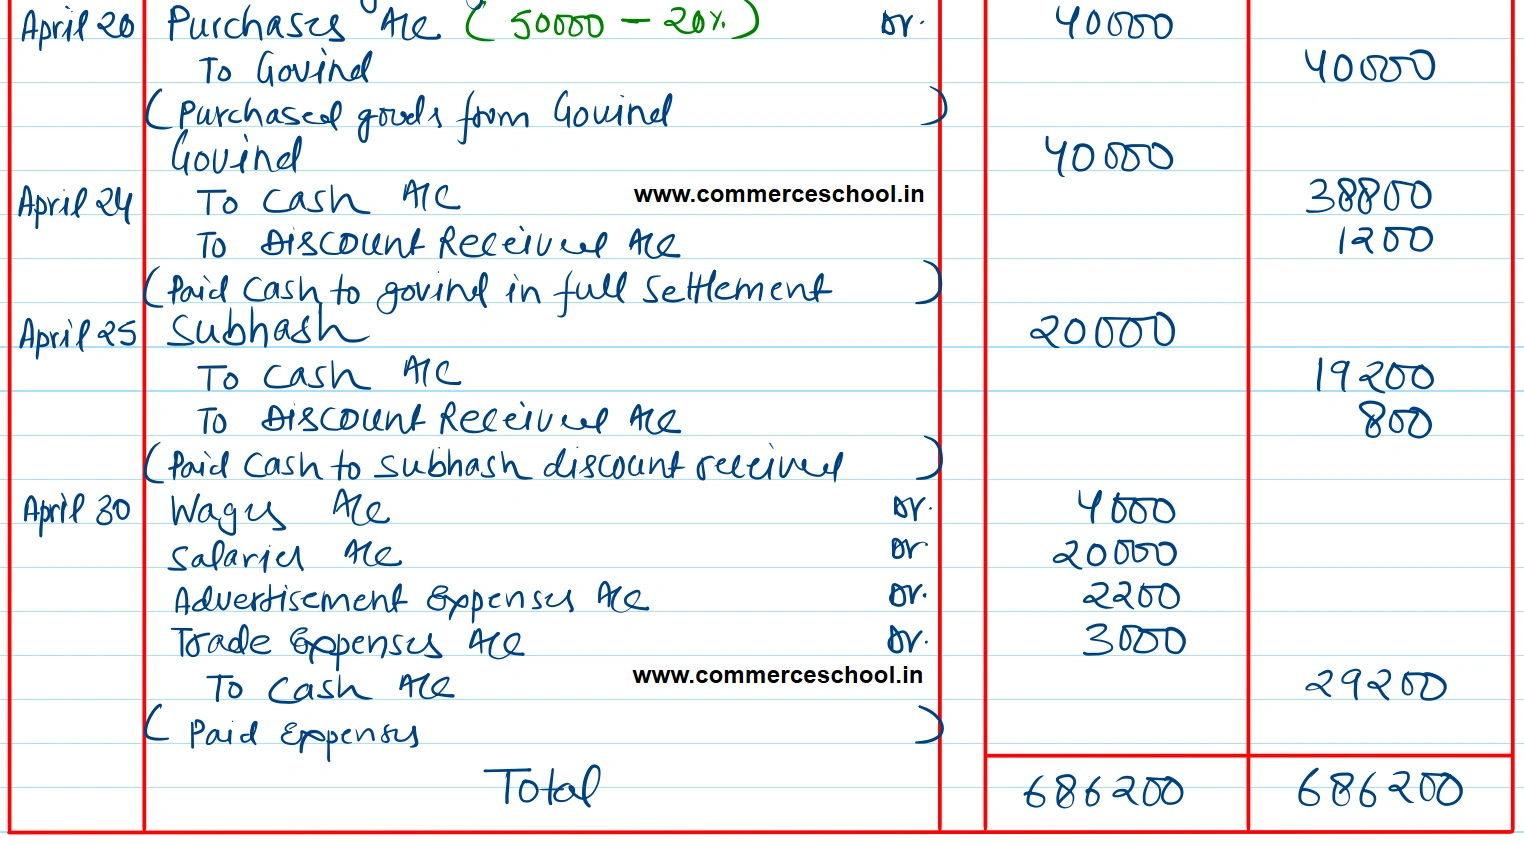 April 20 Purchases A/c (50000 - 20%) Dr. 40000
To Govind 40000
(Purchased goods from Govind)
Govind 40000
April 24 To Cash A/c www.commerceschool.in 38800
To Discount Received A/c 1200
(Paid Cash to govind in full settlement)
April 25 Subhash 20000
To Cash A/c 19200
To Discount Received A/c 800
(Paid Cash to subhash discount received)
April 30 Wages A/c Dr. 4000
Salaries A/c Dr 20000
Advertisement Expenses A/c Dr. 2200
Trade Expenses A/c Dr. 3000
www.commerceschool.in
To Cash A/c 29200
(Paid Expenses)
Total 686200 686200